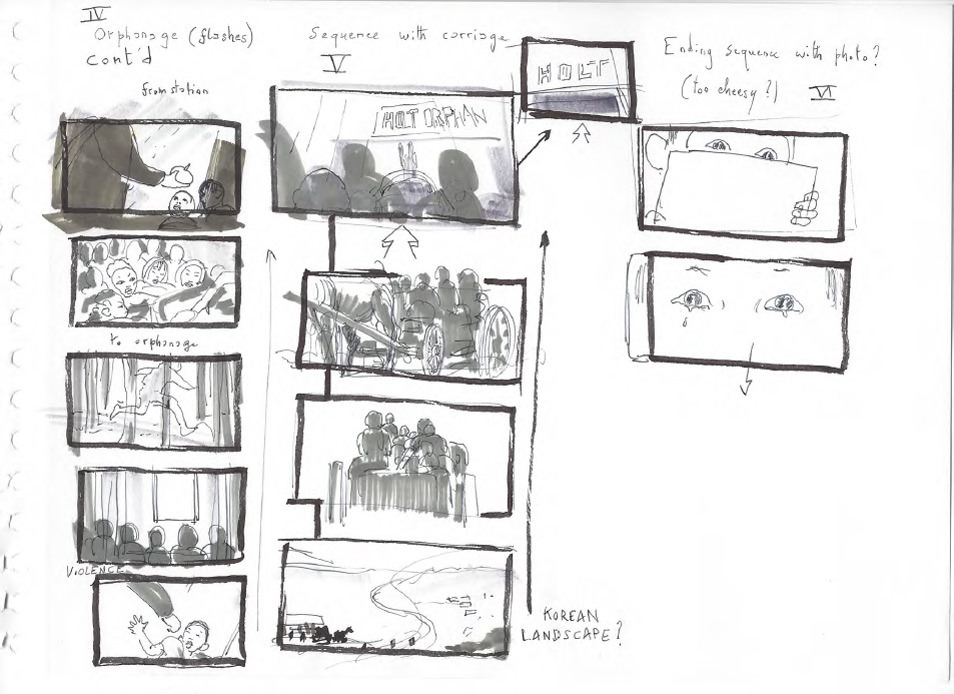 IV
Orphanage (flashes)
cont'd
from station
to orphanage
VIOLENCE
Sequence with carriage
V
HOLT ORPHAN
HOLT
KOREAN
LANDSCAPE?
Ending sequence with photo?
(too cheesy?) VI